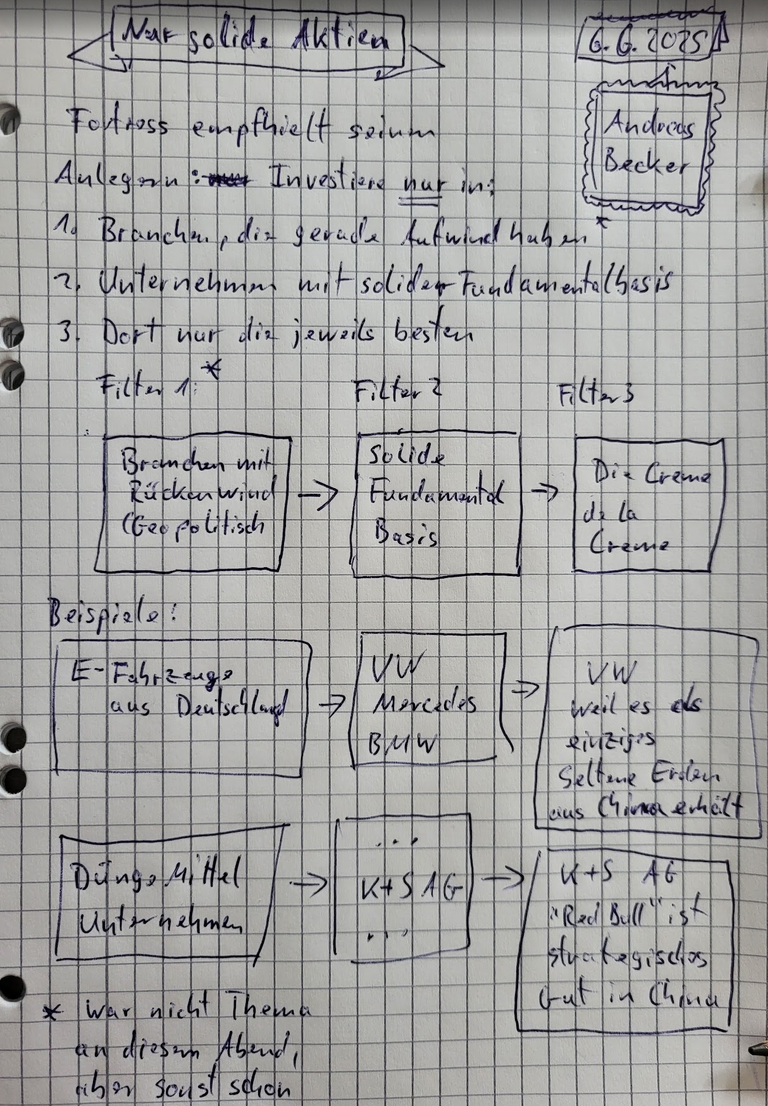 Nur solide Aktien
6.6.2025
Andreas
Becker
Fortress empfhielt seinen
Anlegern: Investiere nur in:
1. Branchen, die gerade Aufwind haben*
2. Unternehmen mit solider Fundamentalbasis
3. Dort nur die jeweils besten
Filter 1:*
Filter 2
Filter 3
Branchen mit
Rückenwind
(Geopolitisch
Solide
Fundamental
Basis
Die Creme
de la
Creme
Beispiele:
E-Fahrzeuge
aus Deutschland
VW
Mercedes
BMW
VW
weil es als
einziges
Seltene Erden
aus China erhält
DüngeMittel
Unternehmen
...
K+S AG
...
K+S AG
"Red Bull" ist
strategisches
Gut in China
* war nicht Thema
an diesem Abend,
aber sonst schon